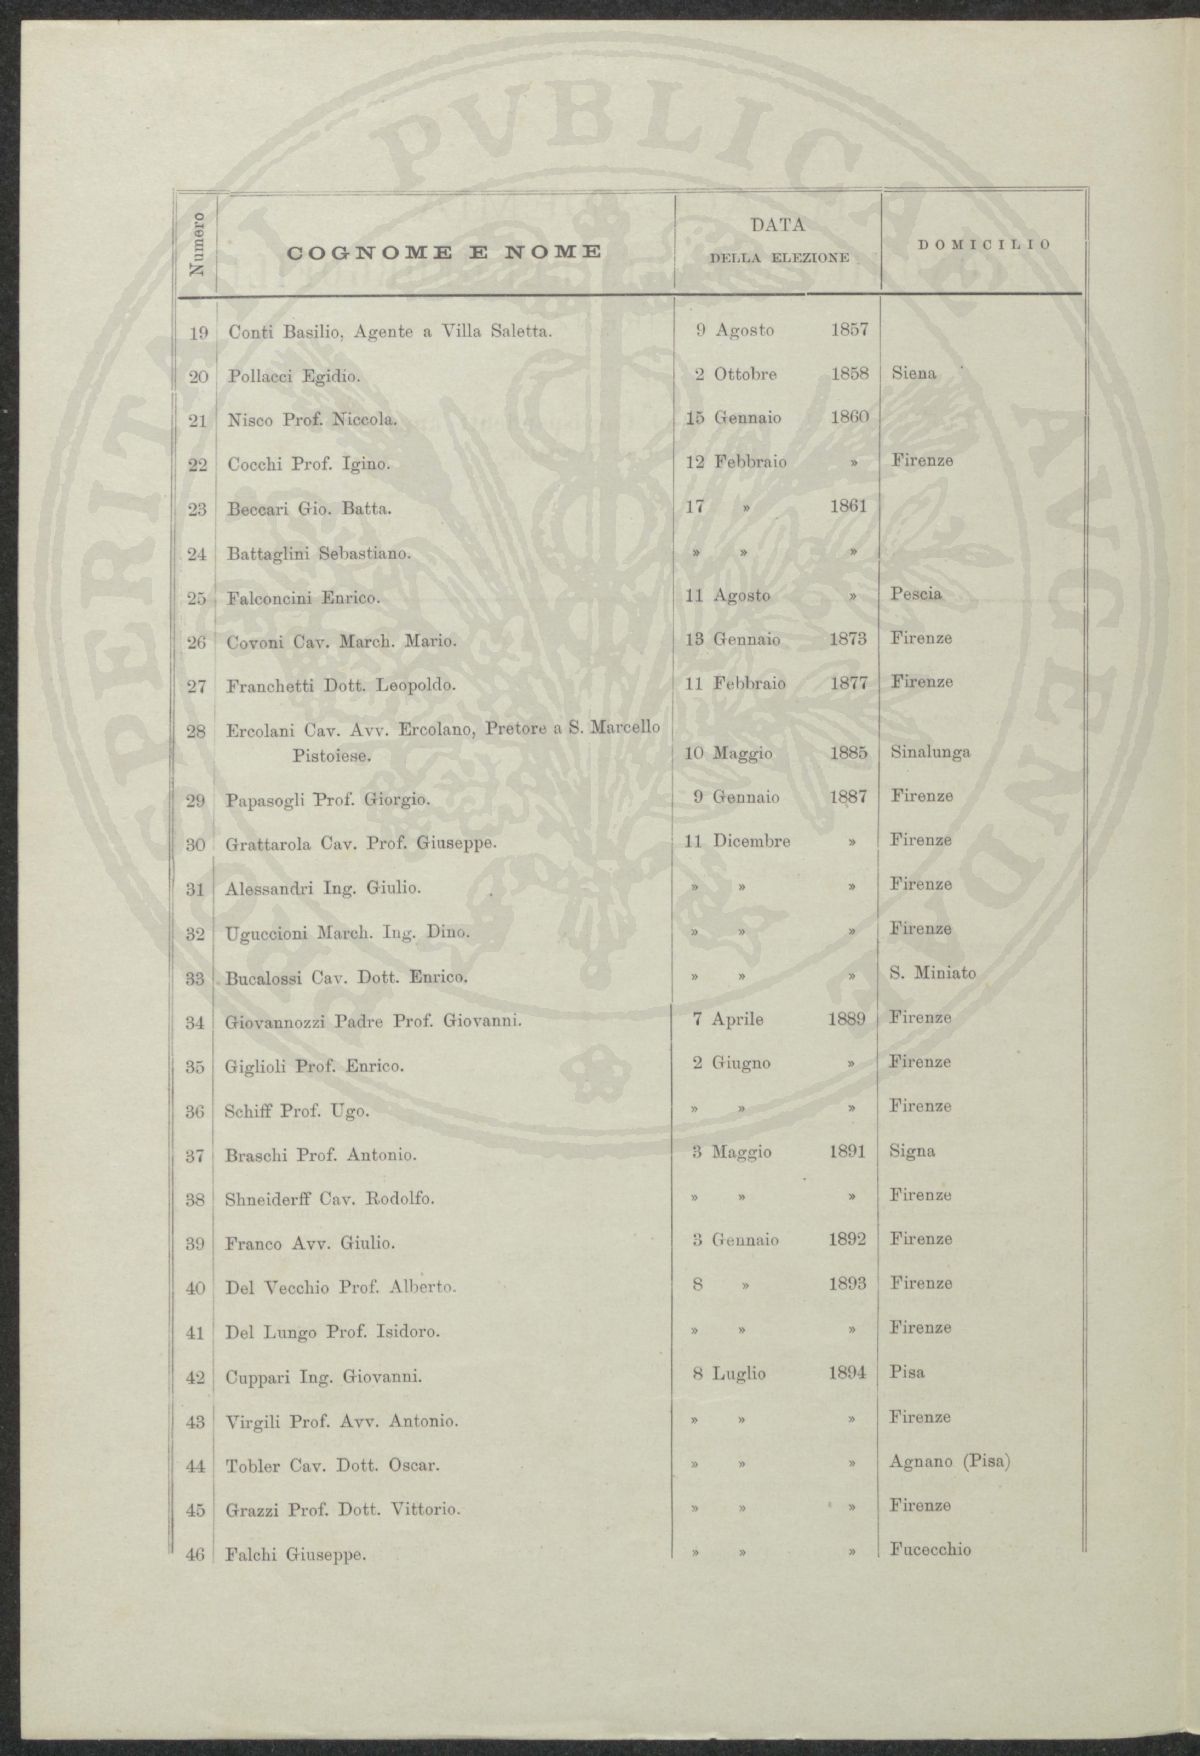 PROSPERITATI PVBLICAE AVGENDAE
Numero COGNOME E NOME DATA DELLA ELEZIONE DOMICILIO
19 Conti Basilio, Agente a Villa Saletta. 9 Agosto 1857
20 Pollacci Egidio. 2 Ottobre 1858 Siena
21 Nisco Prof. Niccola. 15 Gennaio 1860
22 Cocchi Prof. Igino. 12 Febbraio » Firenze
23 Beccari Gio. Batta. 17 » 1861
24 Battaglini Sebastiano. » » »
25 Falconcini Enrico. 11 Agosto » Pescia
26 Covoni Cav. March. Mario. 13 Gennaio 1873 Firenze
27 Franchetti Dott. Leopoldo. 11 Febbraio 1877 Firenze
28 Ercolani Cav. Avv. Ercolano, Pretore a S. Marcello
Pistoiese. 10 Maggio 1885 Sinalunga
29 Papasogli Prof. Giorgio. 9 Gennaio 1887 Firenze
30 Grattarola Cav. Prof. Giuseppe. 11 Dicembre » Firenze
31 Alessandri Ing. Giulio. » » » Firenze
32 Uguccioni March. Ing. Dino. » » » Firenze
33 Bucalossi Cav. Dott. Enrico. » » » S. Miniato
34 Giovannozzi Padre Prof. Giovanni. 7 Aprile 1889 Firenze
35 Giglioli Prof. Enrico. 2 Giugno » Firenze
36 Schiff Prof. Ugo. » » » Firenze
37 Braschi Prof. Antonio. 3 Maggio 1891 Signa
38 Shneiderff Cav. Rodolfo. » » » Firenze
39 Franco Avv. Giulio. 3 Gennaio 1892 Firenze
40 Del Vecchio Prof. Alberto. 8 » 1893 Firenze
41 Del Lungo Prof. Isidoro. » » » Firenze
42 Cuppari Ing. Giovanni. 8 Luglio 1894 Pisa
43 Virgili Prof. Avv. Antonio. » » » Firenze
44 Tobler Cav. Dott. Oscar. » » » Agnano (Pisa)
45 Grazzi Prof. Dott. Vittorio. » » » Firenze
46 Falchi Giuseppe. » » » Fucecchio